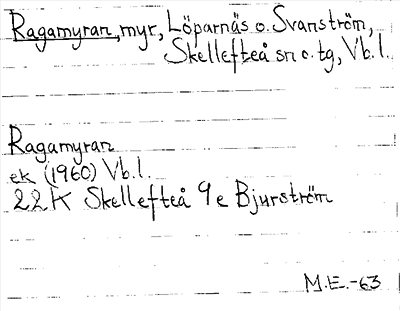 Ragamyran, myr, Löparnäs o. Svanström,
Skellefteå sn o. tg, Vb. l.
Ragamyran
ek (1960) Vb. l.
22K Skellefteå 9e Bjurström
M.E.-63